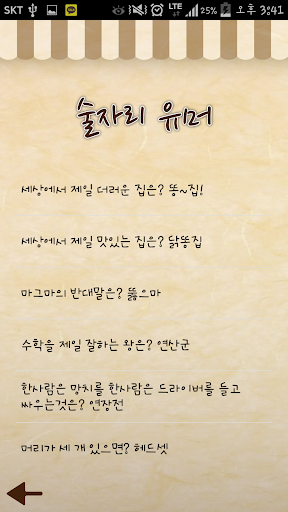 SKT LTE 25% 오후 3:41
술자리 유머
세상에서 제일 더러운 집은? 똥~집!
세상에서 제일 맛있는 집은? 닭똥집
마그마의 반대말은? 뚫으마
수학을 제일 잘하는 왕은? 연산군
한사람은 망치를 한사람은 드라이버를 들고
싸우는것은? 연장전
머리가 세 개 있으면? 헤드셋